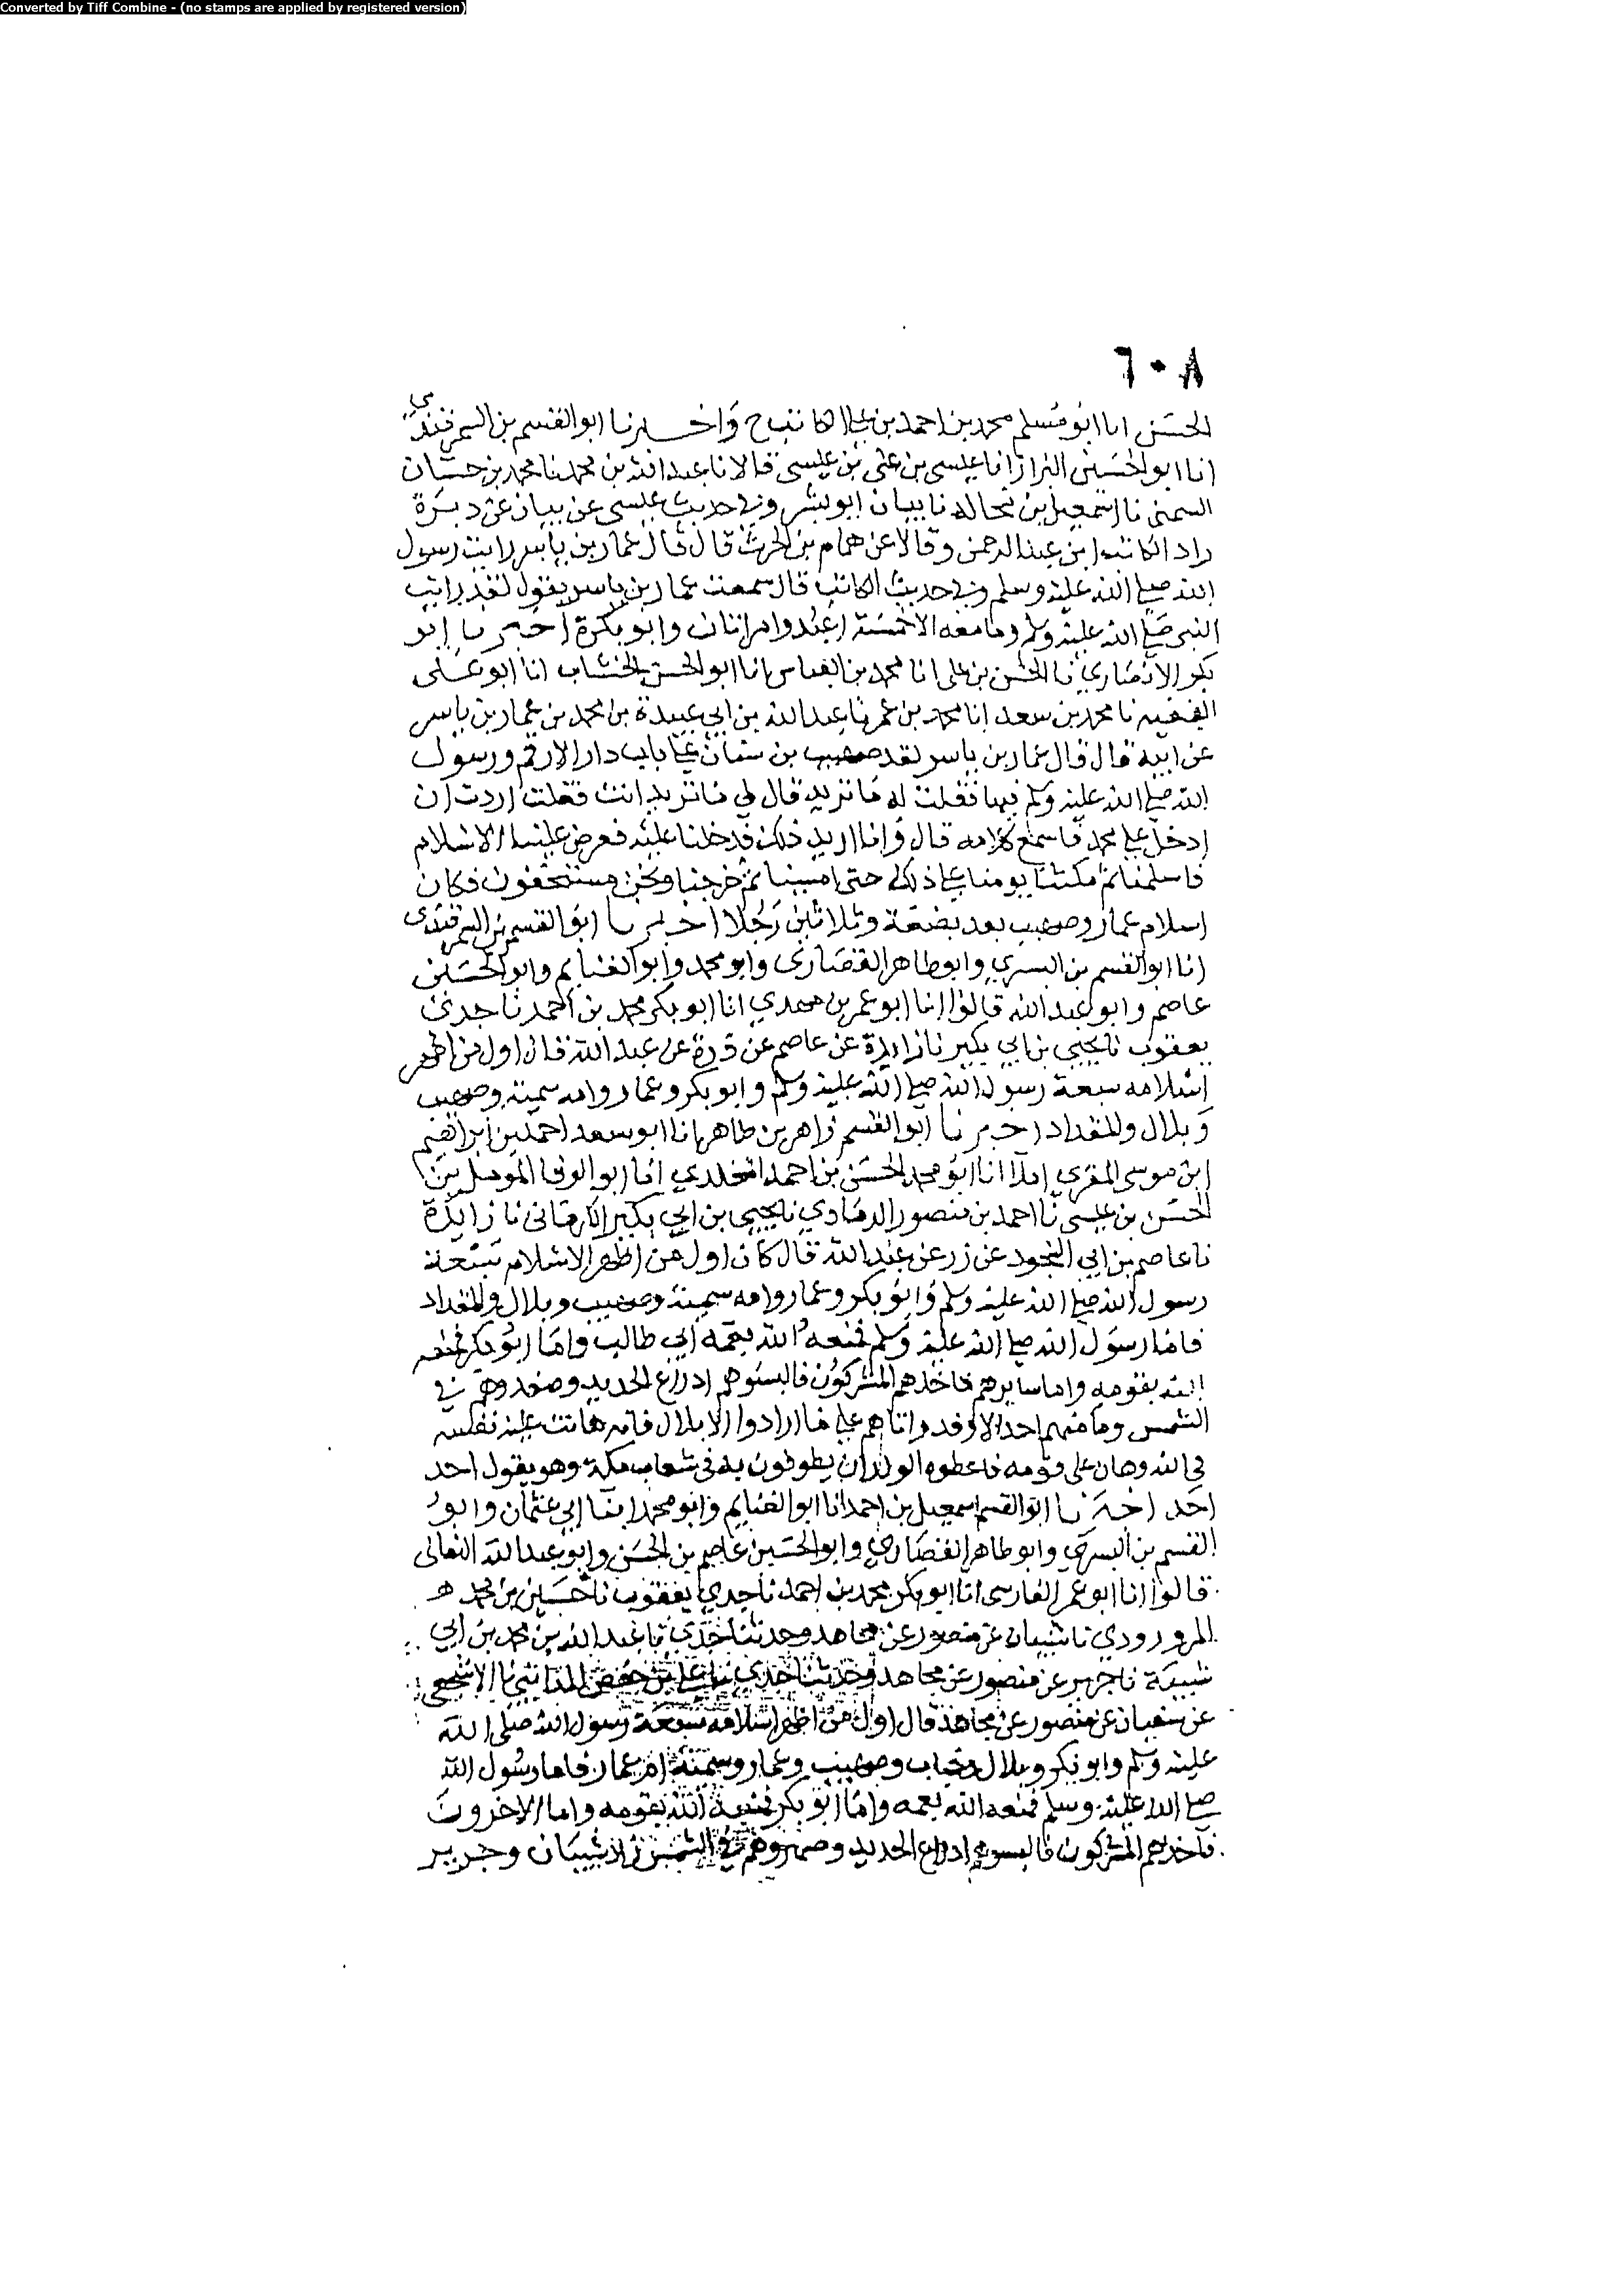 Converted by Tiff Combine - (no stamps are applied by registered version)
٦٠٨
الحسن انا ابو مسلم محمد بن احمد بن علي الكاتب ح واخبرنا ابو القسم بن السمرقندي
انا ابو الحسين البزاز انا عيسى بن علي بن عيسى قالا نا عبد الله بن محمد نا محمد بن حسان
السمتي نا اسمعيل بن مجالد نا بيان ابو بشر وفي حديث عيسى عن بيان عن وبرة
زاد الكاتب ابن عبد الرحمن وقالا عن همام بن الحرث قال قال عمار بن ياسر رايت رسول
الله صلى الله عليه وسلم وفي حديث الكاتب قال سمعت عمار بن ياسر يقول لقد رايت
النبي صلى الله عليه وسلم وما معه الا خمسة اعبد وامراتان وابو بكر اخبرنا ابو
بكر الانصاري نا الحسن بن علي انا محمد بن العباس انا ابو الحسن الخشاب انا ابو علي
الفقيه نا محمد بن سعد انا محمد بن عمر نا عبد الله بن ابي عبيدة بن محمد بن عمار بن ياسر
عن ابيه قال قال عمار بن ياسر لقد صهيب بن سنان على باب دار الارقم ورسول
الله صلى الله عليه وسلم فيها فقلت له ما تريد قال لي ما تريد انت فقلت اردت ان
ادخل على محمد فاسمع كلامه قال وانا اريد ذلك فدخلنا عليه فعرض علينا الاسلام
فاسلمنا ثم مكثنا يومنا على ذلك حتى امسينا ثم خرجنا ونحن مستخفون فكان
اسلام عمار وصهيب بعد بضعة وثلاثين رجلا اخبرنا ابو القسم بن السمرقندي
انا ابو القسم بن البسري وابو طاهر القصاري وابو محمد وابو الغنايم وابو الحسين
عاصم وابو عبد الله قالوا انا ابو عمر بن مهدي انا ابو بكر محمد بن احمد نا جدي
يعقوب نا يحيى بن ابي بكير نا زايدة عن عاصم عن زر عن عبد الله قال اول من اظهر
اسلامه سبعة رسول الله صلى الله عليه وسلم وابو بكر وعمار وامه سمية وصهيب
وبلال والمقداد اخبرنا ابو القسم زاهر بن طاهر انا ابو سعد احمد بن ابراهيم
ابن موسى المقرى املا انا ابو محمد الحسن بن احمد المخلدي انا ابو الوفا المومل بن
الحسن بن عيسى نا احمد بن منصور الرمادي نا يحيى بن ابي بكير الكرماني نا زايدة
نا عاصم بن ابي النجود عن زر عن عبد الله قال كان اول من اظهر الاسلام سبعة
رسول الله صلى الله عليه وسلم وابو بكر وعمار وامه سمية وصهيب وبلال والمقداد
فاما رسول الله صلى الله عليه وسلم فمنعه الله بعمه ابي طالب واما ابو بكر فمنعه
الله بقومه واما سايرهم فاخذهم المشركون فالبسوهم ادراع الحديد وصفدوهم في
الشمس وما منهم احد الا وقد واتاهم على ما ارادوا الا بلال فانه هانت عليه نفسه
في الله وهان على قومه فاعطوه الولدان يطوفون به في شعاب مكة وهو يقول احد
احد اخبرنا ابو القسم اسمعيل بن احمد انا ابو الغنايم وابو محمد ابنا ابي عثمان وابو
القسم بن البسري وابو طاهر القصاري وابو الحسين عاصم بن الحسن وابو عبد الله النعالي
قالوا انا ابو عمر الفارسي انا ابو بكر محمد بن احمد نا جدي يعقوب نا حسين بن محمد
المروروذي نا شيبان عن منصور عن مجاهد وحدثنا جدي نا عبد الله بن محمد بن ابي
شيبة نا جرير عن منصور عن مجاهد وحدثنا جدي نا علي بن حفص المدايني نا الاشجعي
عن سفيان عن منصور عن مجاهد قال اول من اظهر اسلامه سبعة رسول الله صلى الله
عليه وسلم وابو بكر وبلال وخباب وصهيب وعمار وسمية ام عمار فاما رسول الله
صلى الله عليه وسلم فمنعه الله بعمه واما ابو بكر فمنعه الله بقومه واما الاخرون
فاخذهم المشركون فالبسوهم ادراع الحديد وصهروهم في الشمس زاد شيبان وجرير